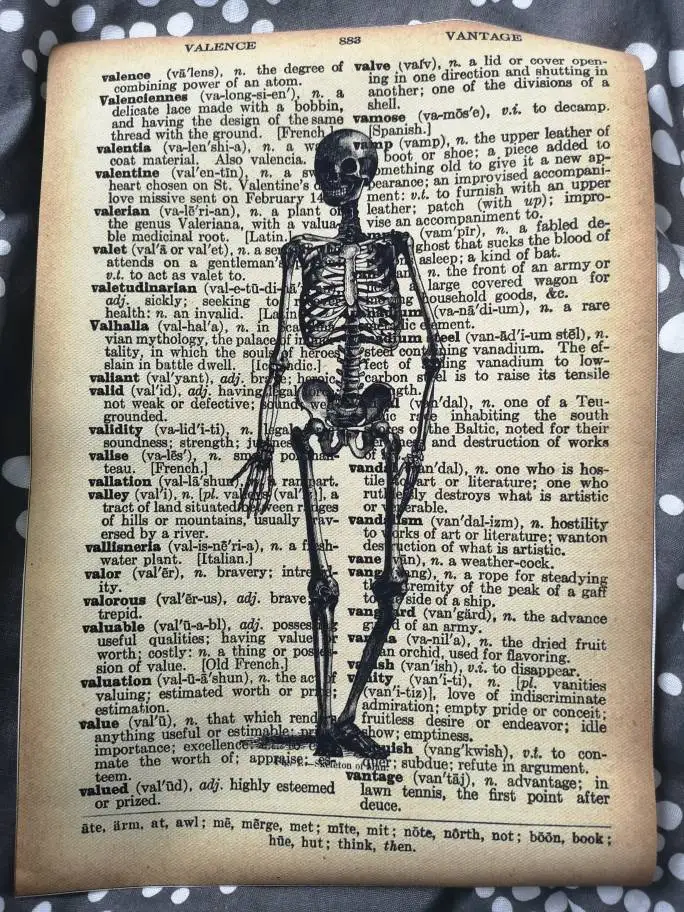 VALENCE 883 VANTAGE
valence (vā'lens), n. the degree of
combining power of an atom.
Valenciennes (va-long-si-en'), n. a
delicate lace made with a bobbin,
and having the design of the same
thread with the ground. [French.]
valentia (va-len'shi-a), n. a
coat material. Also valencia.
valentine (val'en-tīn), n. a
heart chosen on St. Valentine's
love missive sent on February 14
valerian (va-lē'ri-an), n. a plant of
the genus Valeriana, with a
ble medicinal root. [Latin.]
valet (val'ā or val'et), n. a
attends on a gentleman's
v.t. to act as valet to.
valetudinarian (val-e-tū-di-
adj. sickly; seeking to
health: n. an invalid.
Valhalla (val-hal'a), n. in
vian mythology, the palace of
tality, in which the souls of heroes
slain in battle dwell.
valiant (val'yant), adj. brave; heroic.
valid (val'id), adj. having legal
not weak or defective; sound;
grounded.
validity (va-lid'i-ti), n. legal
soundness; strength; justness.
valise (va-lēs'), n. small
teau. [French.]
vallation (val-lā'shun), n. a rampart.
valley (val'i), n. [pl. valleys (val'iz)], a
tract of land situated between ranges
of hills or mountains, usually trav-
ersed by a river.
vallisneria (val-is-nē'ri-a), n. a fresh-
water plant. [Italian.]
valor (val'ēr), n. bravery; intrepid-
ity.
valorous (val'ēr-us), adj. brave;
trepid.
valuable (val'ū-a-bl), adj. possessing
useful qualities; having value or
worth; costly: n. a thing or posses-
sion of value. [Old French.]
valuation (val-ū-ā'shun), n. the act of
valuing; estimated worth or price;
estimation.
value (val'ū), n. that which renders
anything useful or estimable;
importance; excellence:
mate the worth of; appraise;
teem.
valued (val'ūd), adj. highly esteemed
or prized.
valve (valv), n. a lid or cover open-
ing in one direction and shutting in
another; one of the divisions of a
shell.
vamose (va-mōs'e), v.i. to decamp.
[Spanish.]
vamp (vamp), n. the upper leather of
boot or shoe; a piece added to
something old to give it a new ap-
pearance; an improvised accompani-
ment: v.t. to furnish with an upper
leather; patch (with up); impro-
vise an accompaniment to.
(vam'pīr), n. a fabled de-
ghost that sucks the blood of
asleep; a kind of bat.
n. the front of an army or
large covered wagon for
household goods, &c.
(va-nā'di-um), n. a rare
element.
steel (van-ād'i-um stēl), n.
steel containing vanadium. The ef-
fect of vanadium to low-
carbon steel is to raise its tensile
strength.
(van'dal), n. one of a Teu-
race inhabiting the south
of the Baltic, noted for their
and destruction of works
of
vandal (van'dal), n. one who is hos-
tile to art or literature; one who
ruthlessly destroys what is artistic
or venerable.
vandalism (van'dal-izm), n. hostility
to works of art or literature; wanton
destruction of what is artistic.
vane (vān), n. a weather-cock.
vang (vang), n. a rope for steadying
the extremity of the peak of a gaff
to the side of a ship.
vanguard (van'gärd), n. the advance
guard of an army.
vanilla (va-nil'a), n. the dried fruit
an orchid, used for flavoring.
vanish (van'ish), v.i. to disappear.
vanity (van'i-ti), n. [pl. vanities
(van'i-tiz)], love of indiscriminate
admiration; empty pride or conceit;
fruitless desire or endeavor; idle
show; emptiness.
vanquish (vang'kwish), v.t. to con-
quer; subdue; refute in argument.
vantage (van'tāj), n. advantage; in
lawn tennis, the first point after
deuce.
Skeleton of Man.
āte, ärm, at, awl; mē, mērge, met; mīte, mit; nōte, nôrth, not; bōōn, book;
hūe, hut; think, then.